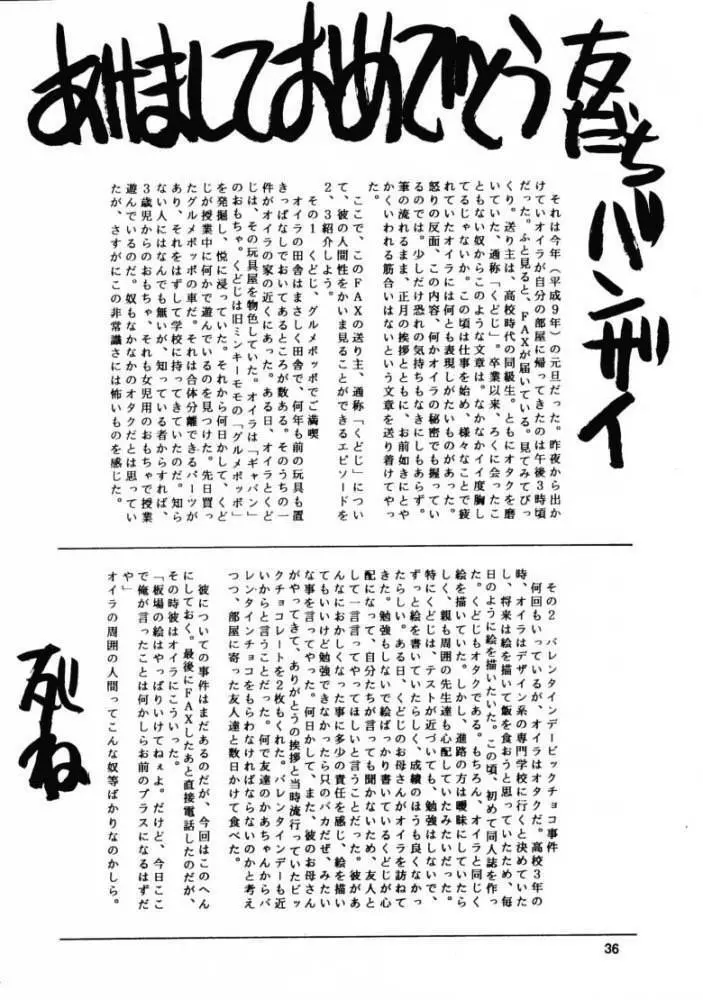 友だちバンザイ
あけましておめでとう
それは今年（平成９年）の元旦だった。昨夜から出か
けていオイラが自分の部屋に帰ってきたのは午後３時頃
だった。ふと見ると、ＦＡＸが届いている。見てみてびっ
くり。送り主は、高校時代の同級生。ともにオタクを磨
いていた、通称「くどじ」。卒業以来、ろくに会ったこ
ともない奴からこのような文章は。なかなかイイ度胸し
てるじゃないか。この頃は仕事を始め、様々なことで疲
れていたオイラには何とも表現しがたいものがあった。
怒りの反面、この内容、何かオイラの秘密でも握ってい
るのでは。少しだけ恐れの気持ちもなきにしもあらず。
筆の流れるまま、正月の挨拶とともに、お前如きにとや
かくいわれる筋合いはないという文章を送り着けてやっ
た。
ここで、このＦＡＸの送り主、通称「くどじ」につい
て、彼の人間性をかいま見ることができるエピソードを
２、３紹介しよう。
その１　くどじ、グルメポッポでご満喫
オイラの田舎はまさしく田舎で、何年も前の玩具も置
きっぱなしでおいてあるところが数ある。そのうちの一
件がオイラの家の近くにあった。ある日、オイラとくど
じは、その玩具屋を物色していた。オイラは「ギャバン」
のおもちゃ。くどじは旧ミンキーモモの「グルメポッポ」
を発掘し、悦に浸っていた。それから何日かして、くど
じが授業中に何かで遊んでいるのを見つけた。先日買っ
たグルメポッポの車だ。それは合体分離できるパーツが
あり、それをはずして学校に持ってきていたのだ。知ら
ない人にはなんでも無いが、知っている者からすれば、
３歳児からのおもちゃ、それも女児用のおもちゃで授業
遊んでいるのだ。奴もなかなかのオタクだとは思ってい
たが、さすがにこの非常識さには怖いものを感じた。
その２　バレンタインデービックチョコ事件
何回もいっているが、オイラはオタクだ。高校３年の
時、オイラはデザイン系の専門学校に行くと決めていた
し、将来は絵を描いて飯を食おうと思っていたため、毎
日のように絵を描いたいた。この頃、初めて同人誌を作っ
た。くどじもオタクである。もちろん、オイラと同じく
絵を描いていた。しかし、進路の方は曖昧にしていたら
しく、親も周囲の先生達も心配していたみたいだった。
特にくどじは、テストが近づいても、勉強はしないで、
ずっと絵を書いていたらしく、成績のほうも良くなかっ
たらしい。ある日、くどじのお母さんがオイラを訪ねて
きた。勉強もしないで絵ばっかり書いているくどじが心
配になって、自分たちが言っても聞かないため、友人と
して一言言ってやってほしいと言うことだった。彼があ
んなにおかしくなった事に多少の責任を感じ、絵を描い
てもいいけど勉強できなかったら只のバカだぜ、みたい
な事を言ってやった。何日かして、また、彼のお母さん
がやってきて、ありがとうの挨拶と当時流行っていたビッ
クチョコレートを２枚もくれた。バレンタインデーも近
いからと言うことだった。何で友達のかあちゃんからバ
レンタインチョコをもらわなければならないのかと考え
つつ、部屋に寄った友人達と数日かけて食べた。
彼についての事件はまだあるのだが、今回はこのへん
にしておく。最後にＦＡＸしたあと直接電話したのだが、
その時彼はオイラにこういった。
「板場の絵はやっぱりいけてねぇよ。だけど、今日ここ
で俺が言ったことは何かしらお前のプラスになるはずだ
や」
オイラの周囲の人間ってこんな奴等ばかりなのかしら。
死ね
36